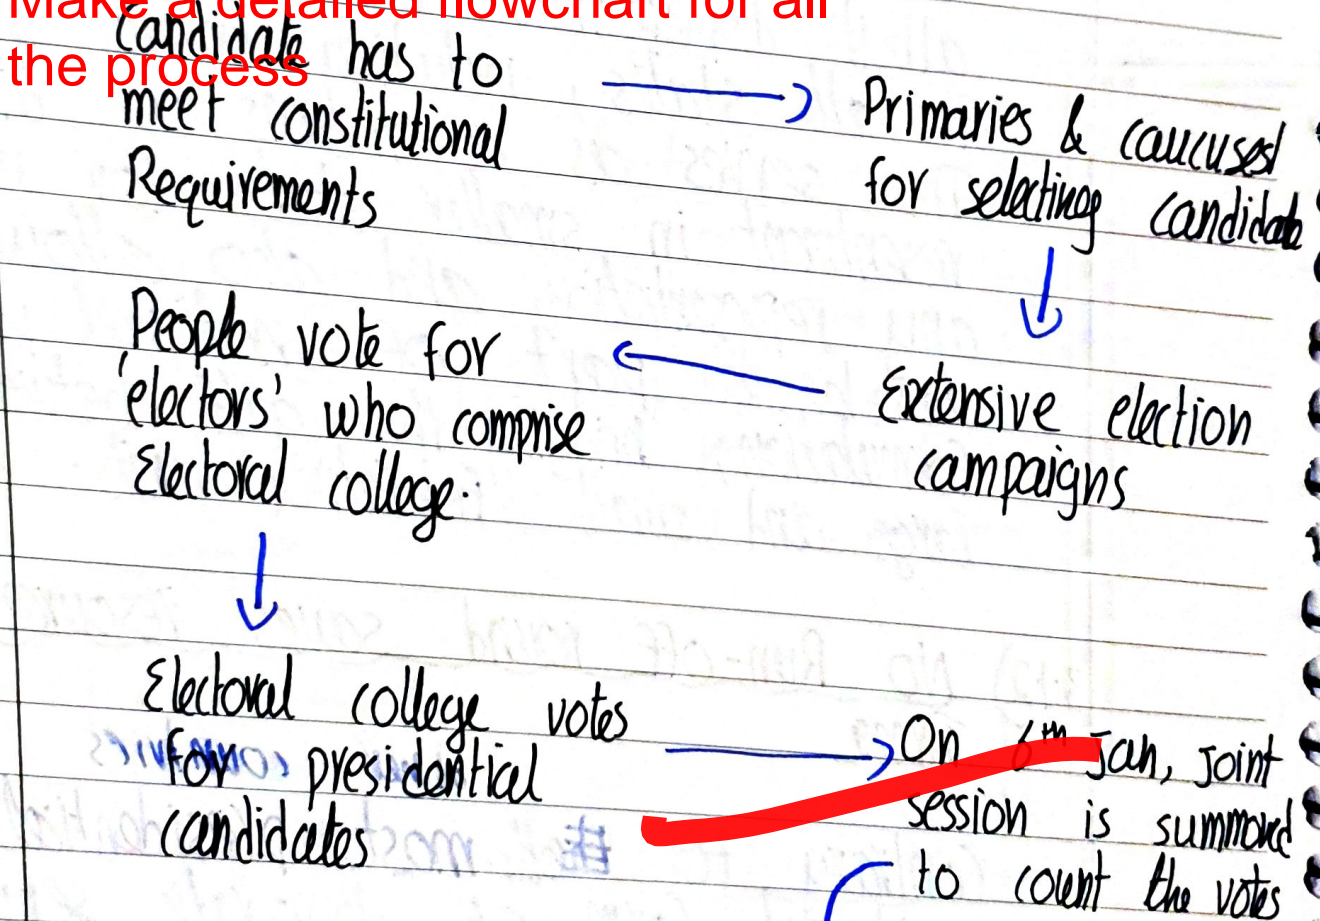 Make a detailed flowchart for all
the process
Candidate has to
meet constitutional
Requirements
Primaries & caucuses
for selecting candidate
Extensive election
campaigns
People vote for
'electors' who comprise
Electoral college.
Electoral college votes
for presidential
candidates
On 6th Jan, joint
session is summond
to count the votes